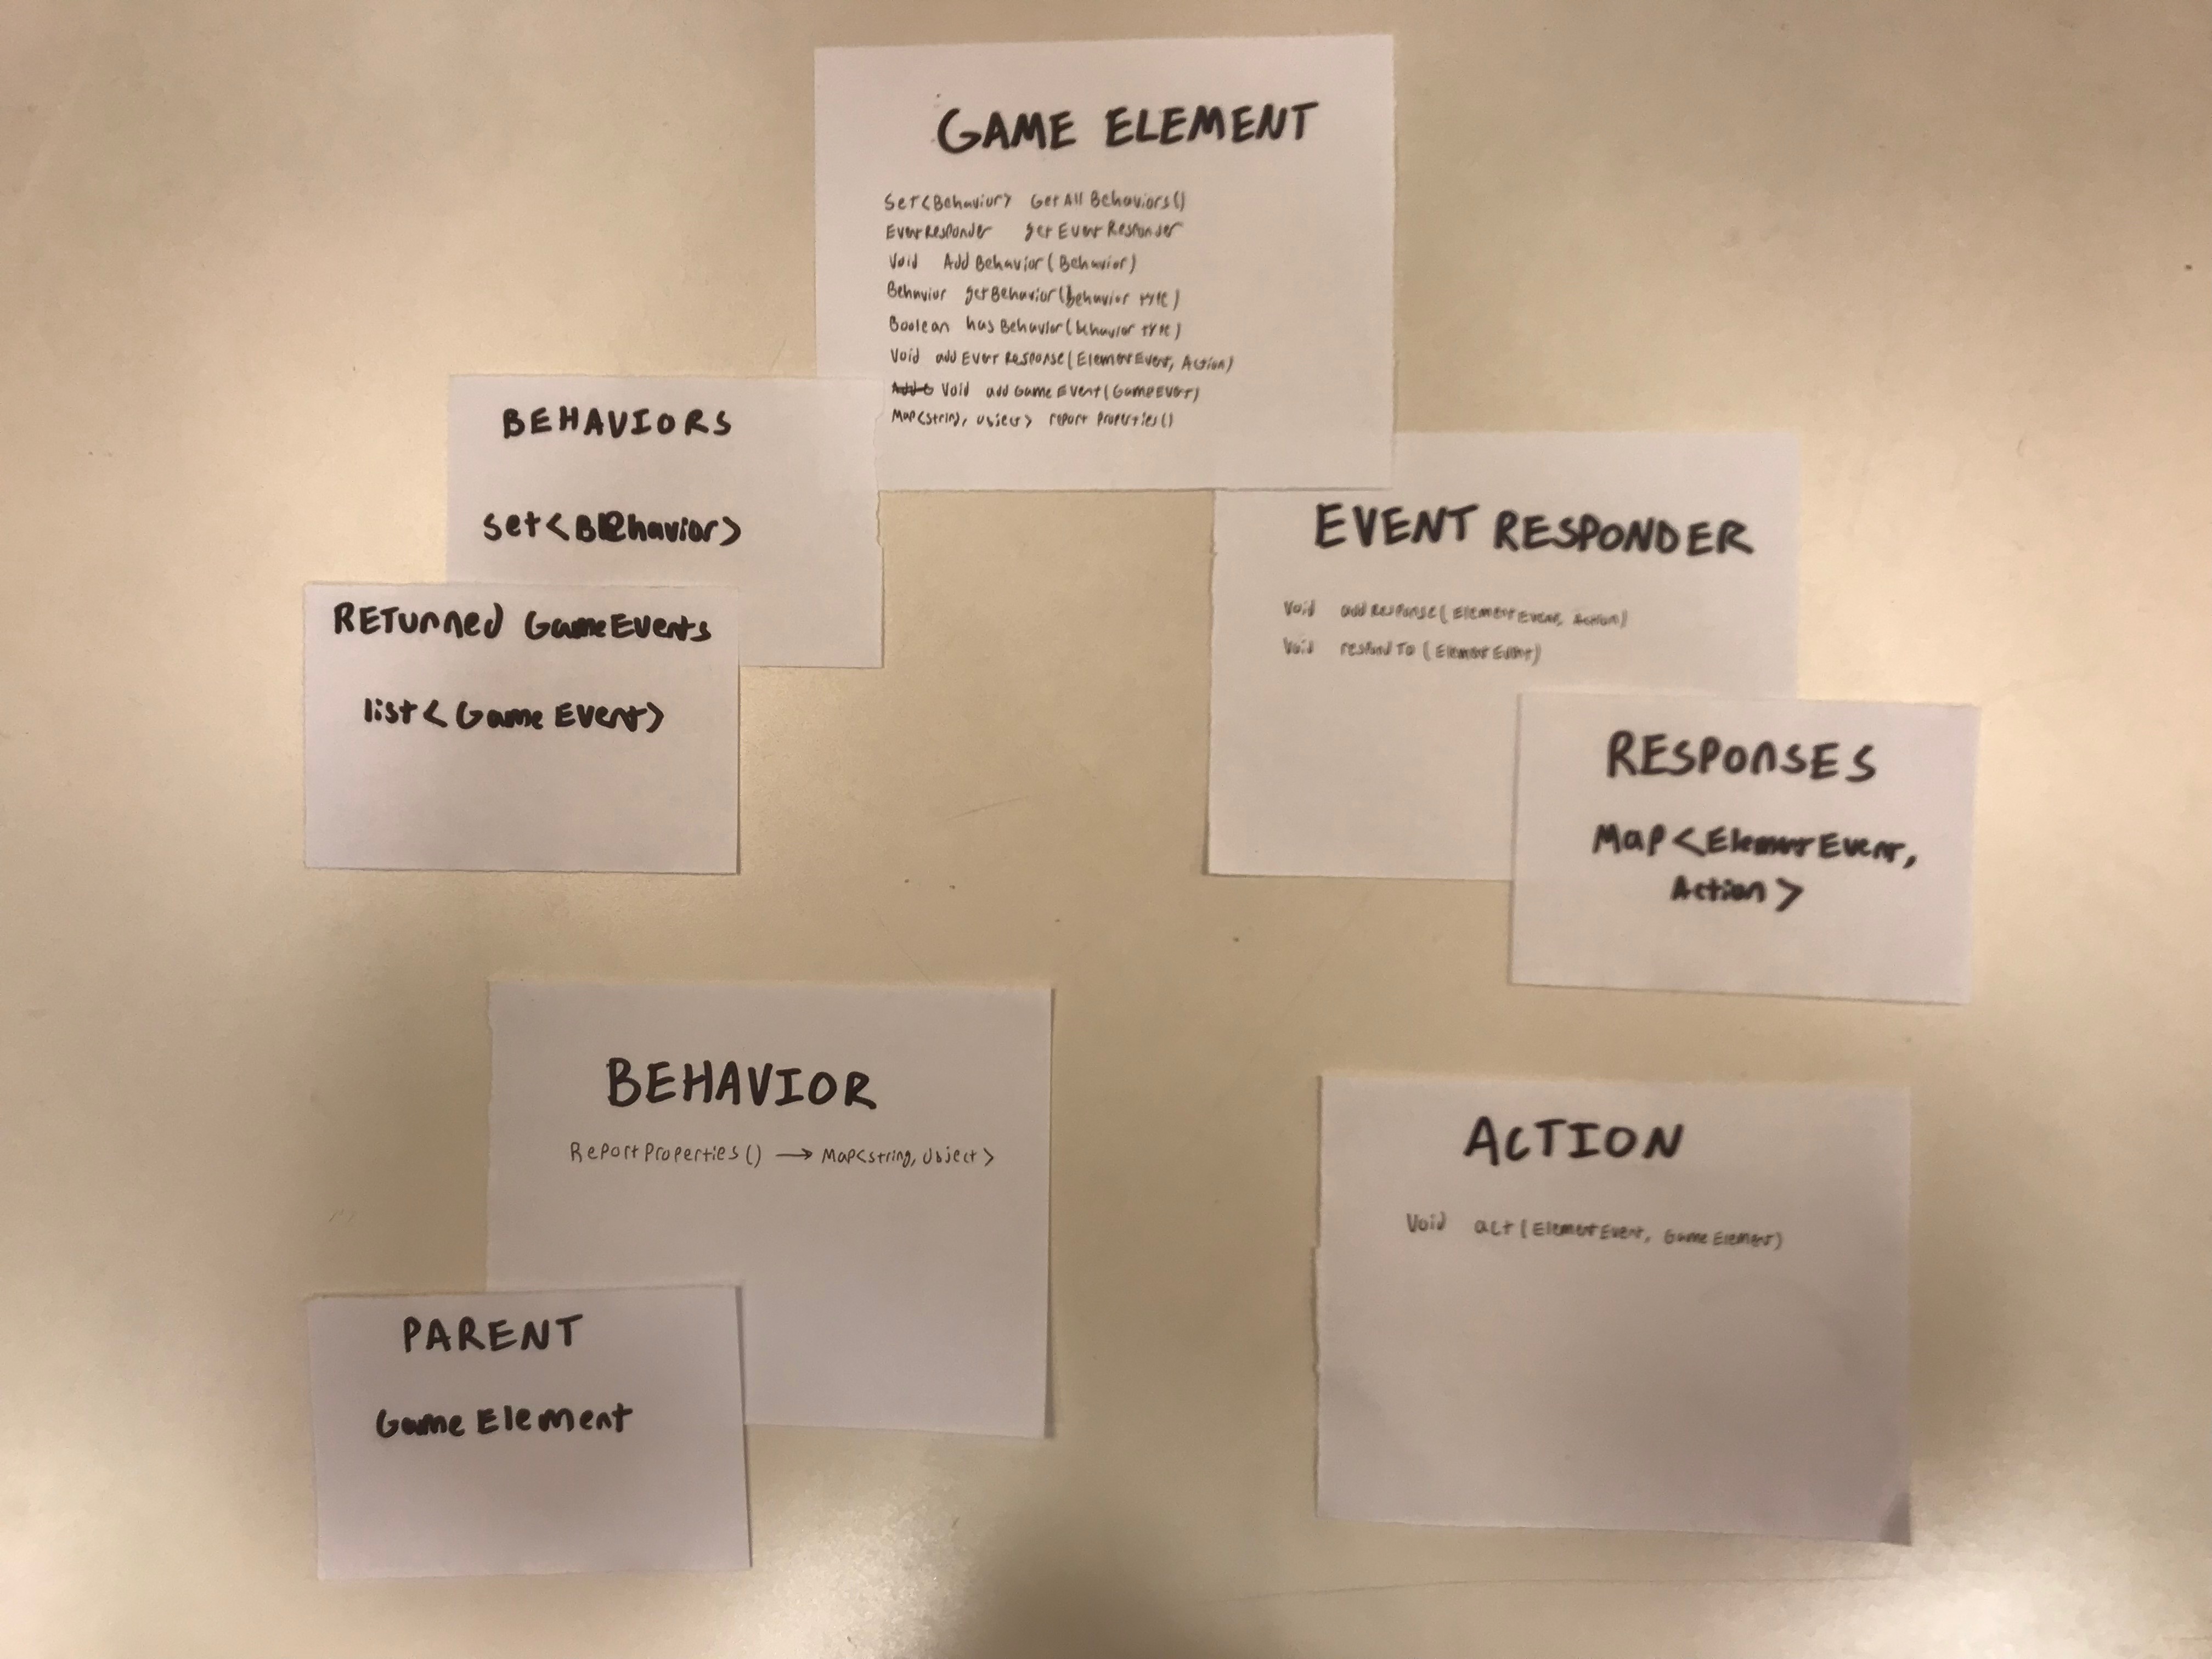 GAME ELEMENT
Set<Behavior> GetAll Behaviors()
EventResponder get Event Responder
Void Add Behavior (Behavior)
Behavior getBehavior (behavior type)
Boolean has Behavior (behavior type)
Void add Event Response (ElementEvent, Action)
Add G Void add Game Event (GameEvent)
Map<string, object> report Properties()
BEHAVIORS
Set<Behavior>
RETurned GameEvents
list<Game Event>
EVENT RESPONDER
Void add Response (Element Event, Action)
Void respond To (Element Event)
RESPONSES
Map<Element Event,
Action>
BEHAVIOR
Report Properties() → Map<string, Object>
PARENT
Game Element
ACTION
Void act (Element Event, Game Element)